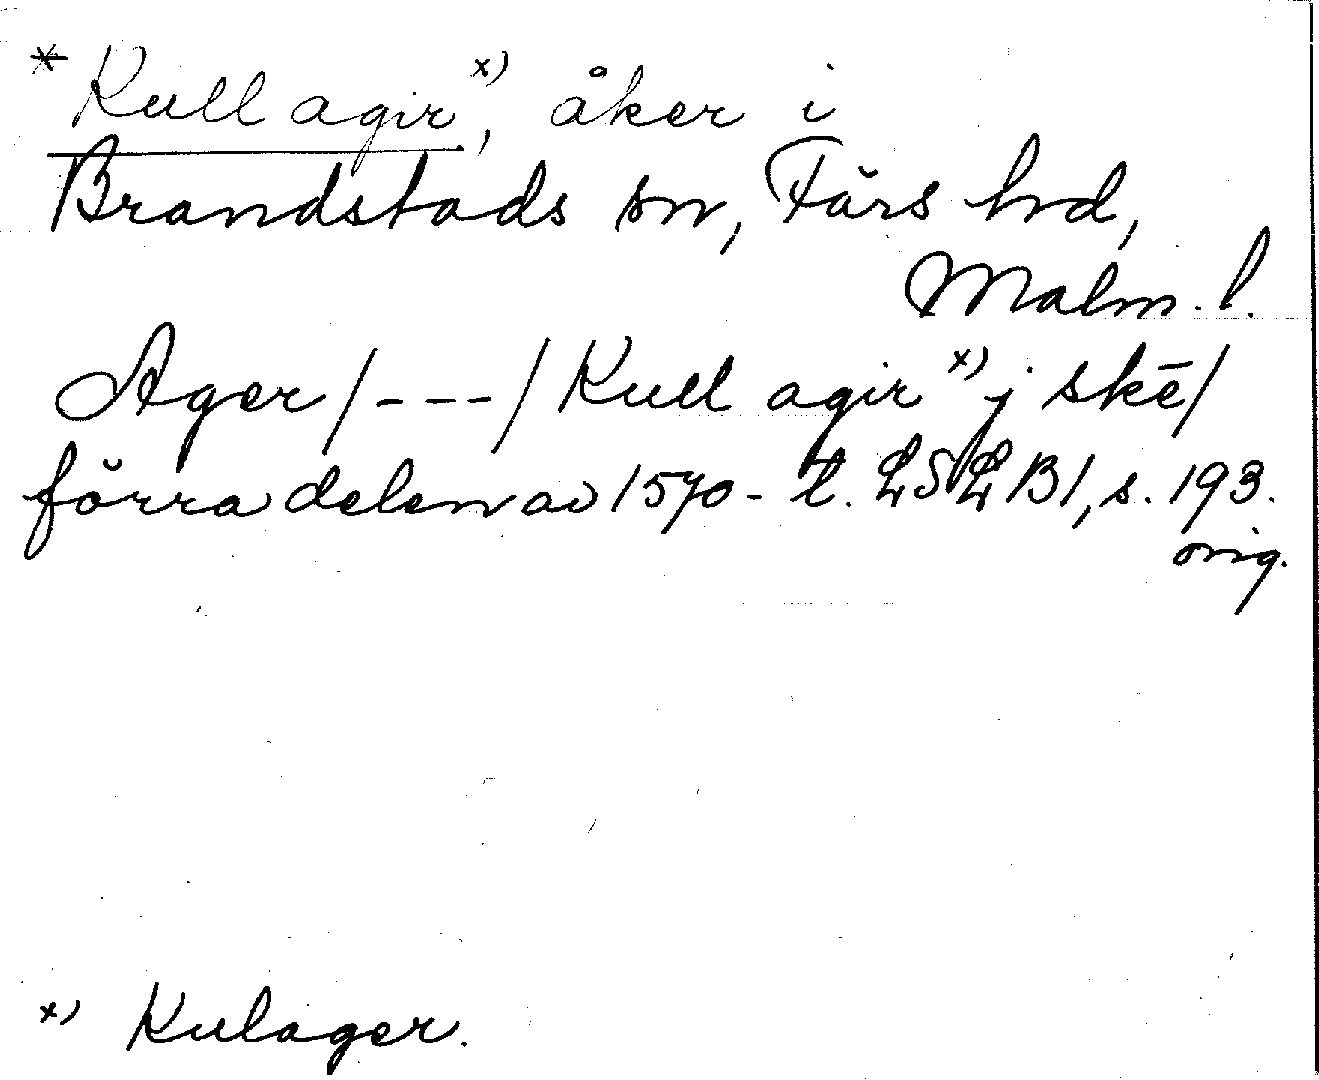 * Kull agir x), åker i
Brandstads sn, Färs hd,
Malm. l.
Ager /---/ Kull agir x) j skē/
förra delen av 1570-t. LSLB1, s. 193.
orig.
x) Kulager.